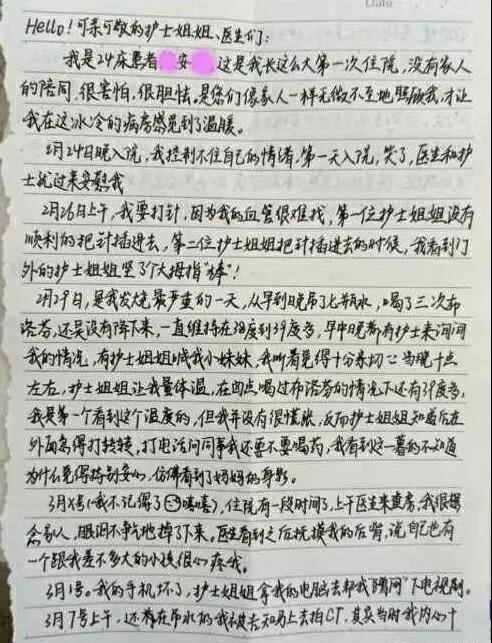 Date
Hello!可亲可敬的护士姐姐、医生们:
我是24床患者 安 这是我长这么大第一次住院,没有家人
的陪同,很害怕,很胆怯,是您们像家人一样无微不至地照顾我,才让
我在这冰冷的病房感觉到了温暖。
2月24日晚入院,我控制不住自己的情绪,第一天入院,哭了,医生和护
士就过来安慰我
2月26日上午,我要打针,因为我的血管很难找,第一位护士姐姐没有
顺利的把针插进去,第二位护士姐姐把针插进去的时候,我看到门
外的护士姐姐竖了个大拇指"棒"!
2月29日,是我发烧最严重的一天,从早到晚吊了七瓶水,喝了三次布
洛芬,还是没有降下来,一直维持在38度到39度多,早中晚都有护士来询问
我的情况,有护士姐姐喊我小妹妹,我听着觉得十分亲切 当晚十点
左右,护士姐姐让我量体温,在四点喝过布洛芬的情况下还有39度多,
我是第一个看到这个温度的,但我并没有很慌张,反而护士姐姐知道后在
外面急得打转转,打电话问同事我还要不要喝药,我看到这一幕的不知道
为什么觉得特别安心,仿佛看到了妈妈的身影。
3月X号(我不记得了 嘻嘻),住院有一段时间了,上午医生来查房,我很想
念家人,眼泪不争气地掉了下来,医生看到之后抚摸我的后背,说自己也有
一个跟我差不多大的小孩很心疼我。
3月1号。我的手机坏了,护士姐姐拿我的电脑去帮我"蹭网"下电视剧。
3月7号上午,还在吊水的我被告知马上去拍CT,其实当时我内心十